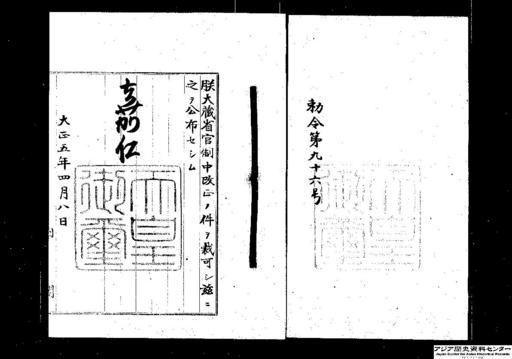 勅令第九十六号
朕大蔵省官制中改正ノ件ヲ裁可シ茲ニ
之ヲ公布セシム
嘉仁
天皇御璽
大正五年四月八日
アジア歴史資料センター
Japan Center for Asian Historical Records